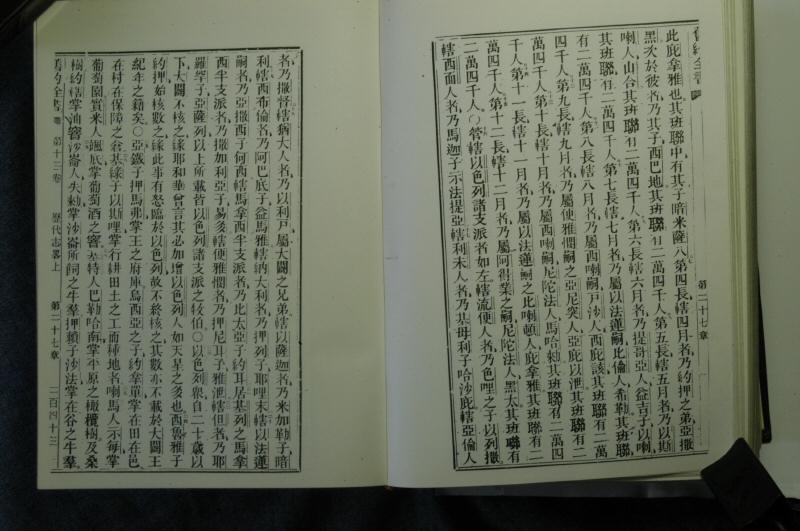 舊約全書
第二十七章
此庇拿雅也其班聯中有其子暗米薩八第四長轄四月者乃約押之弟亞撒
黑次於彼者乃其子西巴地其班聯有二萬四千人第五長轄五月者乃以斯
喇人山合其班聯有二萬四千人第六長轄六月者乃提哥亞人益吉子以喇
其班聯有二萬四千人第七長轄七月者乃屬以法蓮嗣比倫人希勒其班聯
有二萬四千人第八長轄八月者乃屬西喇嗣戶沙人西庇該其班聯有二萬
四千人第九長轄九月者乃屬便雅憫嗣之亞尼突人亞庇以泄其班聯有二
萬四千人第十長轄十月者乃屬西喇嗣尼陀法人馬哈喇其班聯有二萬四
千人第十一長轄十一月者乃屬以法蓮嗣之比喇頓人庇拿雅其班聯有二
萬四千人第十二長轄十二月者乃屬阿得業之嗣尼陀法人黑太其班聯有
二萬四千人○管轄以色列諸支派者如左轄流便人者乃色哩之子以列撒
轄西面人者乃馬迦子示法提亞轄利未人者乃基母利子哈沙庇轄亞倫人
者乃撒督轄猶大人者乃以利戶屬大闢之兄弟轄以薩迦者乃米加勒子暗
利轄西布倫者乃阿巴底子益馬雅轄納大利者乃押列子耶哩末轄以法蓮
嗣者乃亞撒西子何西轄馬拿西半支派者乃比太亞子約耳居基列之馬拿
西半支派者乃撒加利亞子易多轄便雅憫者乃押尼耳子雅泄轄但者乃耶
羅罕子亞薩列以上所載皆以色列諸支派之牧伯○以色列衆自二十歲以
下大闢不核之緣耶和華曾言其必加增以色列人如天星之多也西魯雅子
約押始核數之緣此事有怒臨於以色列故不終核之其數亦不載於大闢王
紀年之籍矣○亞鐵子押馬弗掌王之府庫烏西亞之子約拿單掌在田在邑
在村在保障之倉基綠子以斯哩掌行耕田土之工而種地者喇馬人示每掌
葡萄園實米人颯底掌葡萄酒之窖基特人巴勒哈南掌平原之橄欖樹及桑
樹約轄掌油窖沙崙人失勑掌沙崙所飼之牛羣押賴子沙法掌在谷之牛羣
舊約全書 第十三卷 歷代志畧上 第二十七章 二百四十三